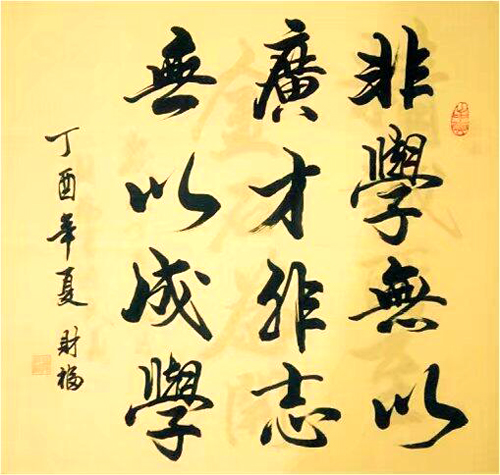 非學無以
廣才非志
無以成學
丁酉年夏
財福